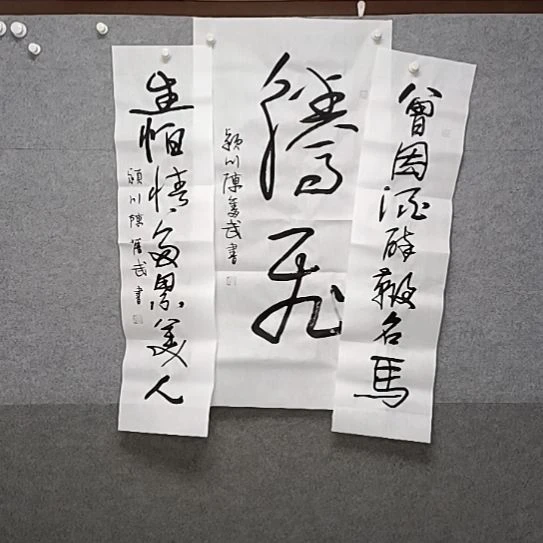 曾因酒醉鞭名馬
騰飛
颍川陳舊武書
生怕情多累美人
颍川陳舊武書